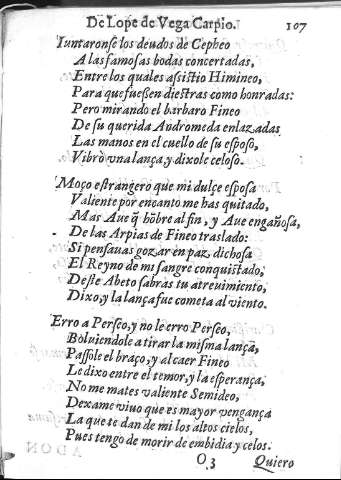 De Lope de Vega Carpio. 107
Iuntaronse los deudos de Cepheo
A las famosas bodas concertadas,
Entre los quales assistio Himineo,
Para que fueßen diestras como honradas:
Pero mirando el barbaro Fineo
De su querida Andromeda enlazadas
Las manos en el cuello de su esposo,
Vibrò vna lança, y dixole celoso.
Moço estrangero que mi dulçe esposa
Valiente por encanto me has quitado,
Mas Aue q̃ hõbre al fin, y Aue engañosa,
De las Arpias de Fineo traslado:
Si pensauas gozar en paz dichosa
El Reyno de mi sangre conquistado,
Deste Abeto sabras tu atreuimiento,
Dixo, y la lança fue cometa al viento.
Erro a Perseo, y no le erro Perseo,
Boluiendole a tirar la misma lança,
Passole el braço, y al caer Fineo
Le dixo entre el temor, y la esperança,
No me mates valiente Semideo,
Dexame viuo que es mayor vengança
La que te dan de mi los altos cielos,
Pues tengo de morir de embidia y celos.
O 3 Quiero